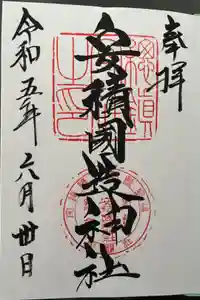 奉拝
安積國造神社
令和五年六月卅日